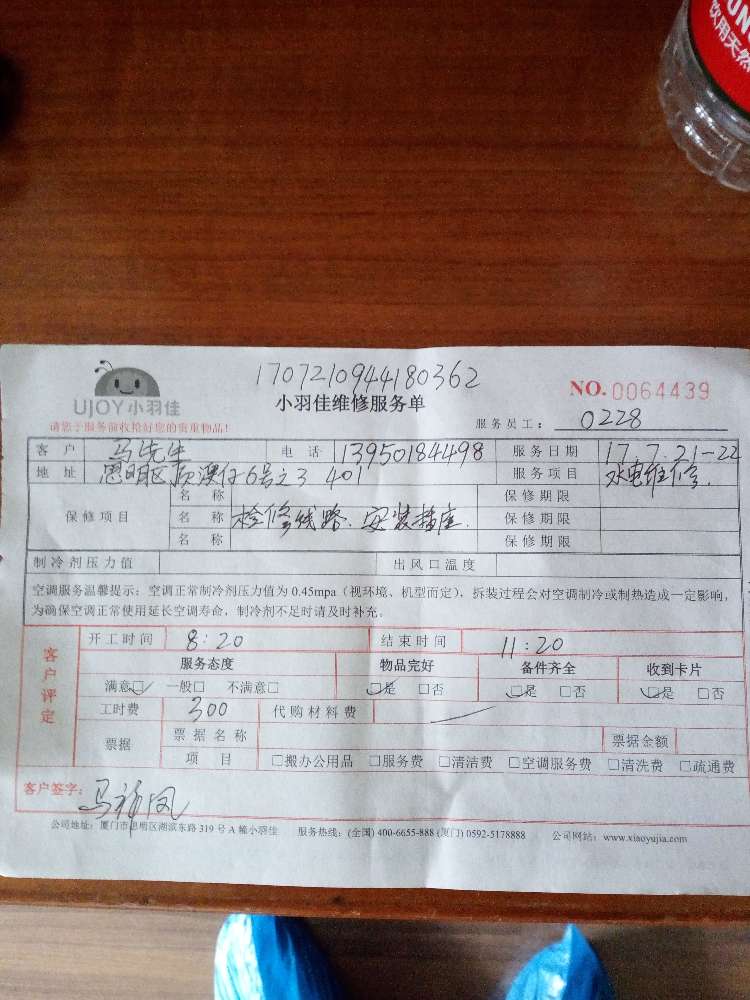 饮用天然
1707210944180362
UJOY小羽佳
小羽佳维修服务单
NO.0064439
请您于服务前收拾好您的贵重物品!
服务员工: 0228
客户 马先生 电话 13950184498 服务日期 17.7.21-22
地址 思明区顶澳仔6号之3 401 服务项目 水电维修.
保修项目
名称 保修期限
名称 检修线路、安装插座. 保修期限
名称 保修期限
制冷剂压力值 出风口温度
空调服务温馨提示:空调正常制冷剂压力值为0.45mpa(视环境、机型而定),拆装过程会对空调制冷或制热造成一定影响,
为确保空调正常使用延长空调寿命,制冷剂不足时请及时补充。
客户评定
开工时间 8:20 结束时间 11:20
服务态度 物品完好 备件齐全 收到卡片
满意☑ 一般□ 不满意□ ☑是 □否 ☑是 □否 ☑是 □否
工时费 300 代购材料费
票据 票据名称 票据金额
项目 □搬办公用品 □服务费 □清洁费 □空调服务费 □清洗费 □疏通费
客户签字:
公司地址:厦门市思明区湖滨东路319号A幢小羽佳 服务热线:(全国)400-6655-888(厦门)0592-5178888 公司网站:www.xiaoyujia.com